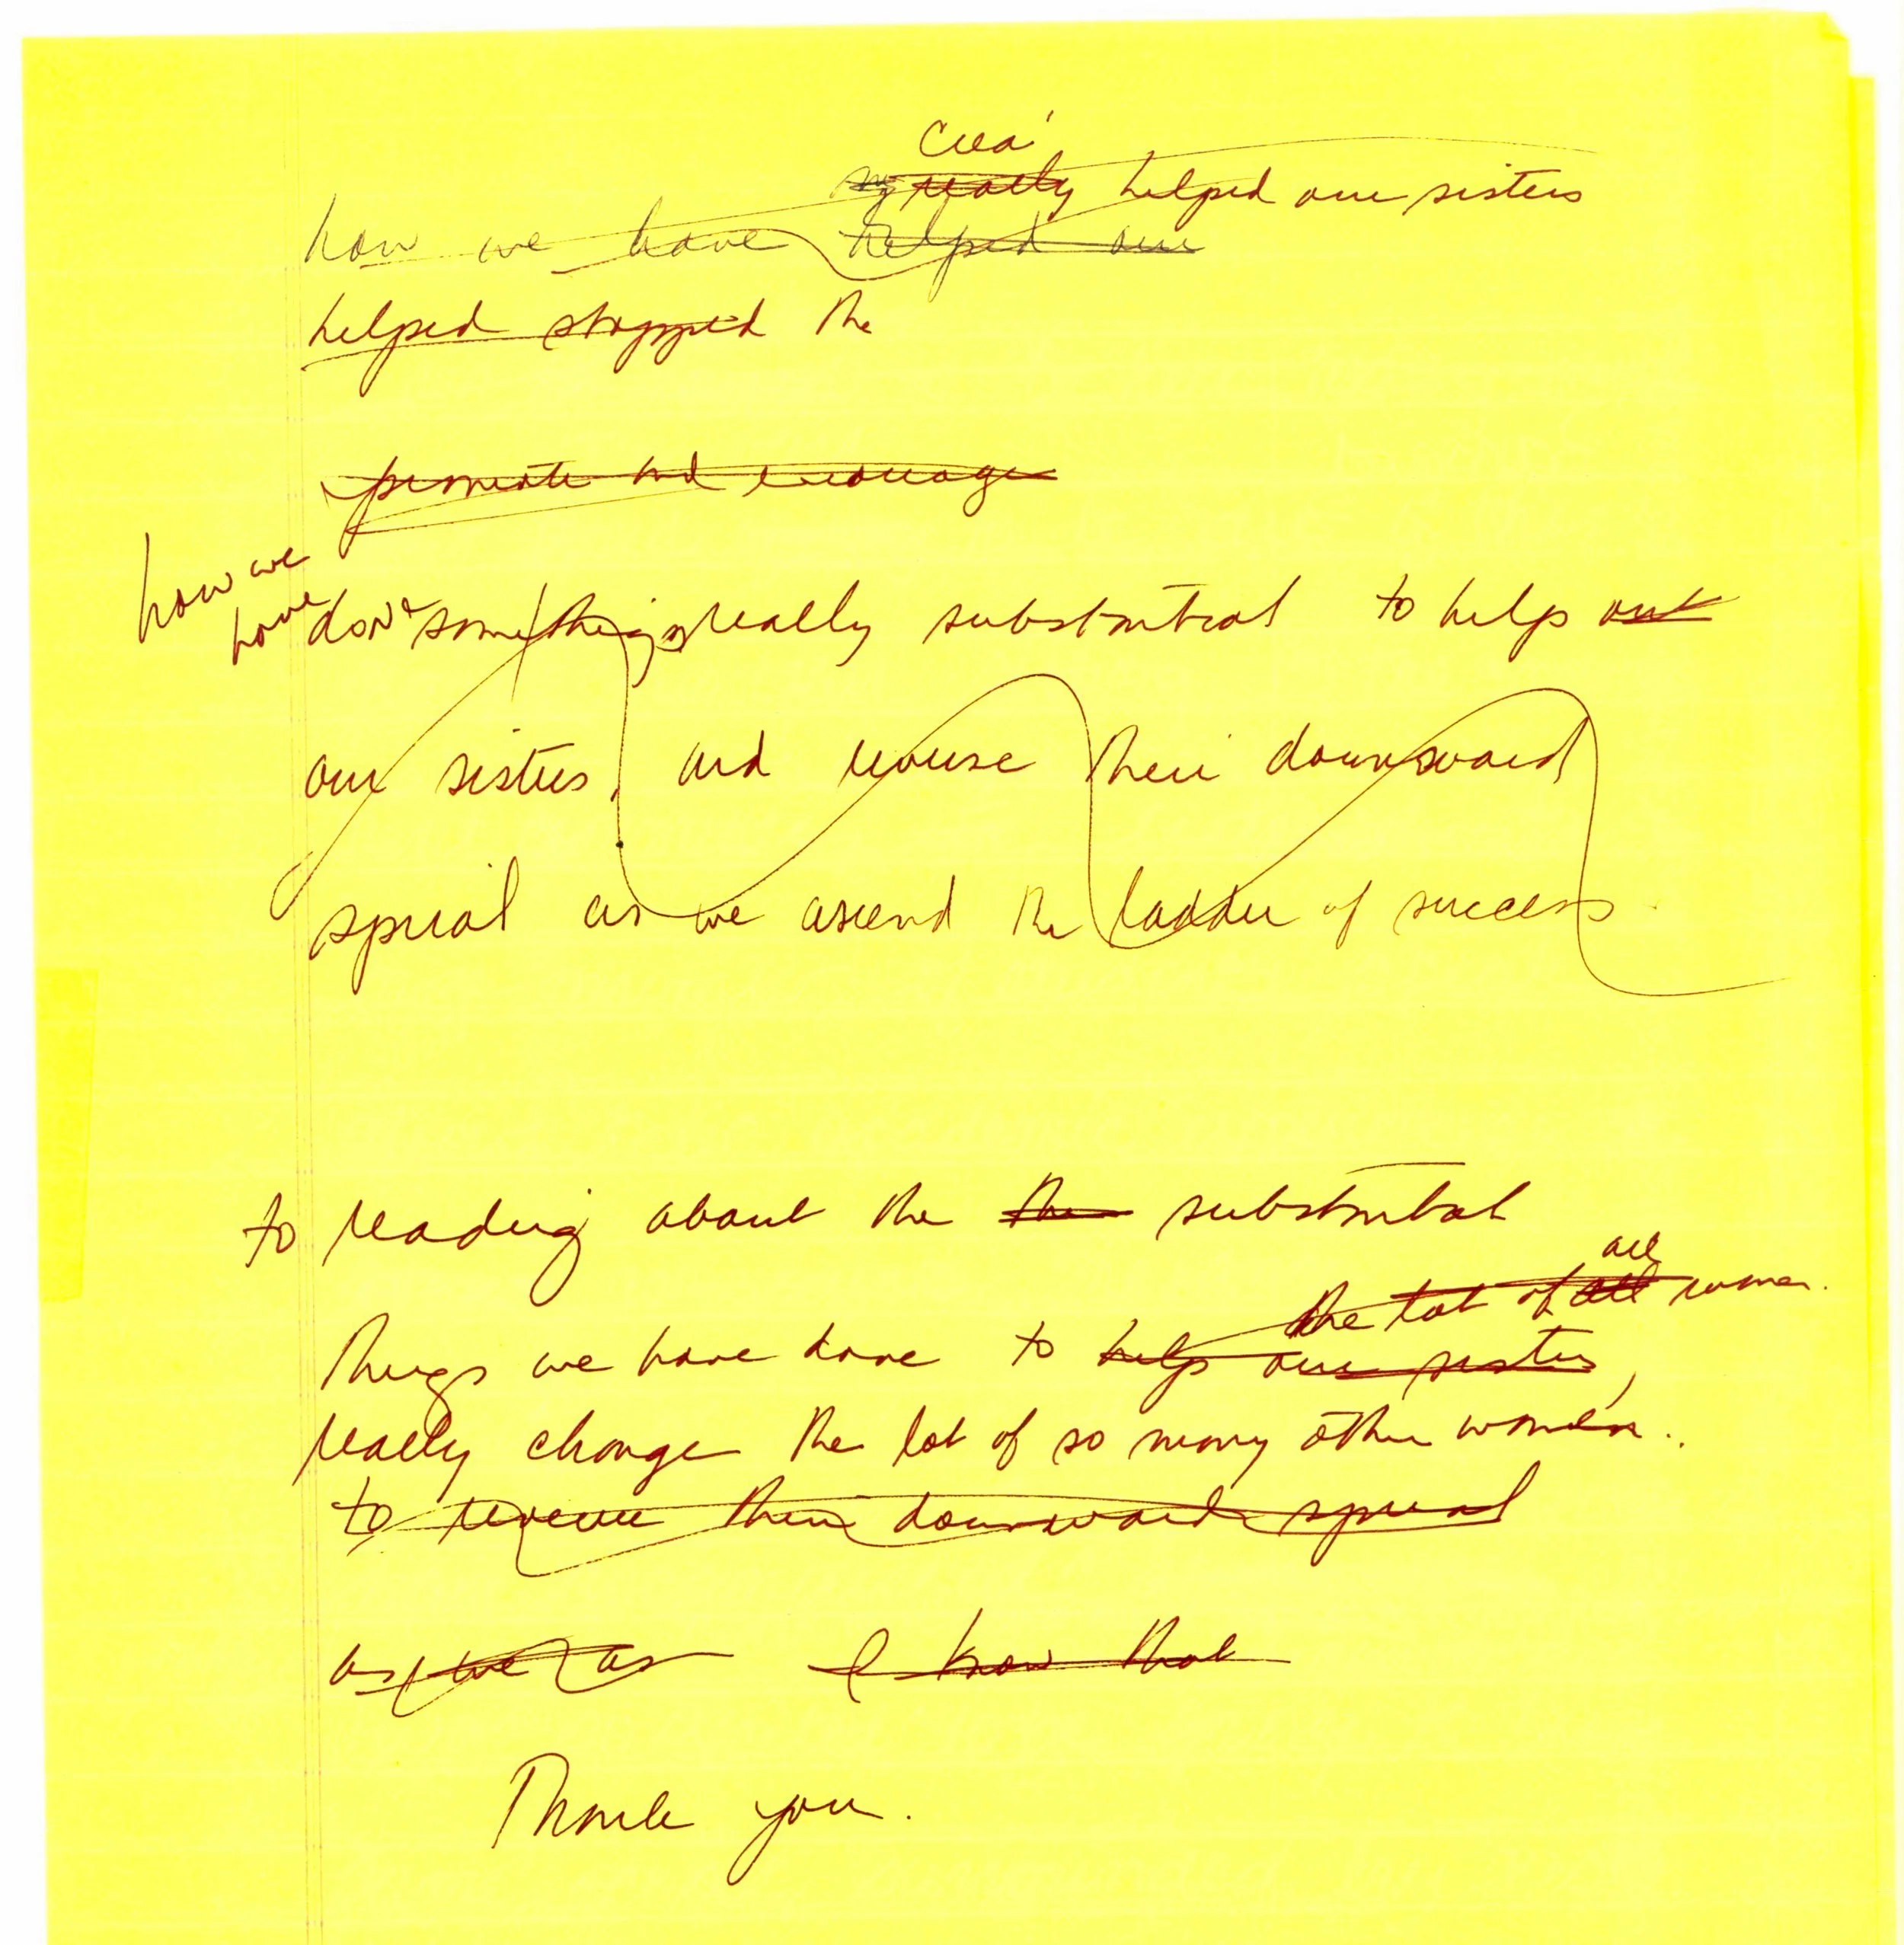 really helped our sisters
how we have helped our
helped stopped the
promote and encourage
how we
have done something really substantial to help out
our sisters, and reverse their downward
spiral as we ascend the ladder of success.
to reading about the the substantial
all
the lot of all women.
things we have done to help our sisters,
really change the lot of so many other women.
to reverse their downward spiral
as we as I know that
Thank you.